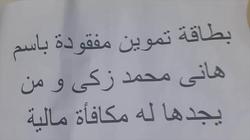 بطاقة تموين مفقودة باسم
هانى محمد زكى و من
يجدها له مكافأة مالية